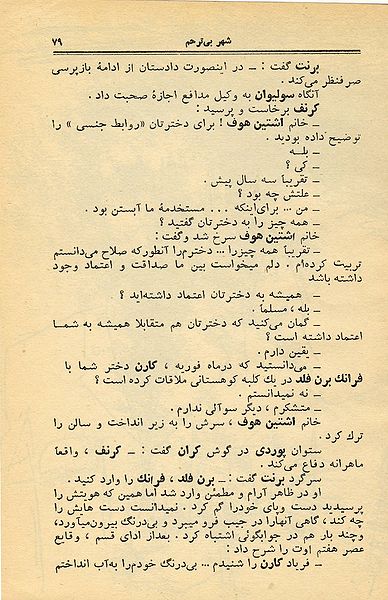 شهر بی‌ترحم ۷۹
برنت گفت : ــ در اینصورت دادستان از ادامهٔ بازپرسی
صرفنظر می‌کند .
آنگاه سولیوان به وکیل مدافع اجازهٔ صحبت داد .
کرنف برخاست و پرسید :
ــ خانم اشتین هوف ! برای دخترتان «روابط جنسی » را
توضیح داده بودید .
ــ بلــه
ــ کی ؟
ــ تقریباً سه سال پیش .
ــ علتش چه بود ؟
ــ من ... برای‌اینکه ... مستخدمهٔ ما آبستن بود .
ــ همه چیز را به دخترتان گفتید ؟
خانم اشتین هوف سرخ شد وگفت :
ــ تقریباً همه چیزرا ... دخترم‌را آنطورکه صلاح می‌دانستم
تربیت کرده‌ام . دلم میخواست بین ما صداقت و اعتماد وجود
داشته باشد
ــ همیشه به دخترتان اعتماد داشته‌اید ؟
ــ بله ، مسلماً .
ــ گمان می‌کنید که دخترتان هم متقابلا همیشه به شمــا
اعتماد داشته است ؟
ــ یقین دارم .
ــ می‌دانستید که درماه فوریه ، کارن دختر شما با
فرانك برن فلد در یك کلبه کوهستانی ملاقات کرده است ؟
ــ نه نمیدانستم .
ــ متشکرم ، دیگر سوآلی ندارم .
خانم اشتین هوف ، سرش را به زیر انداخت و سالن را
ترك کرد .
ستوان پوردی در گوش کران گفت : ــ کرنف ، واقعاً
ماهرانه دفاع می‌کند .
سرگرد برنت گفت : ــ برن فلد ، فرانك را وارد کنید .
او در ظاهر آرام و مطمئن وارد شد اما همین که هویتش را
پرسیدید دست وپای خودرا گم کرد . نمیدانست دست هایش را
چه کند ، گاهی آنهارا در جیب فرو میبرد و بی‌درنگ بیرون‌میآورد،
وچند بار هم در جوابگوئی اشتباه کرد . بعداز ادای قسم ، وقایع
عصر هفتم اوت را شرح داد :
ــ فریاد کارن را شنیدم ... بی‌درنگ خودم‌را به‌آب انداختم